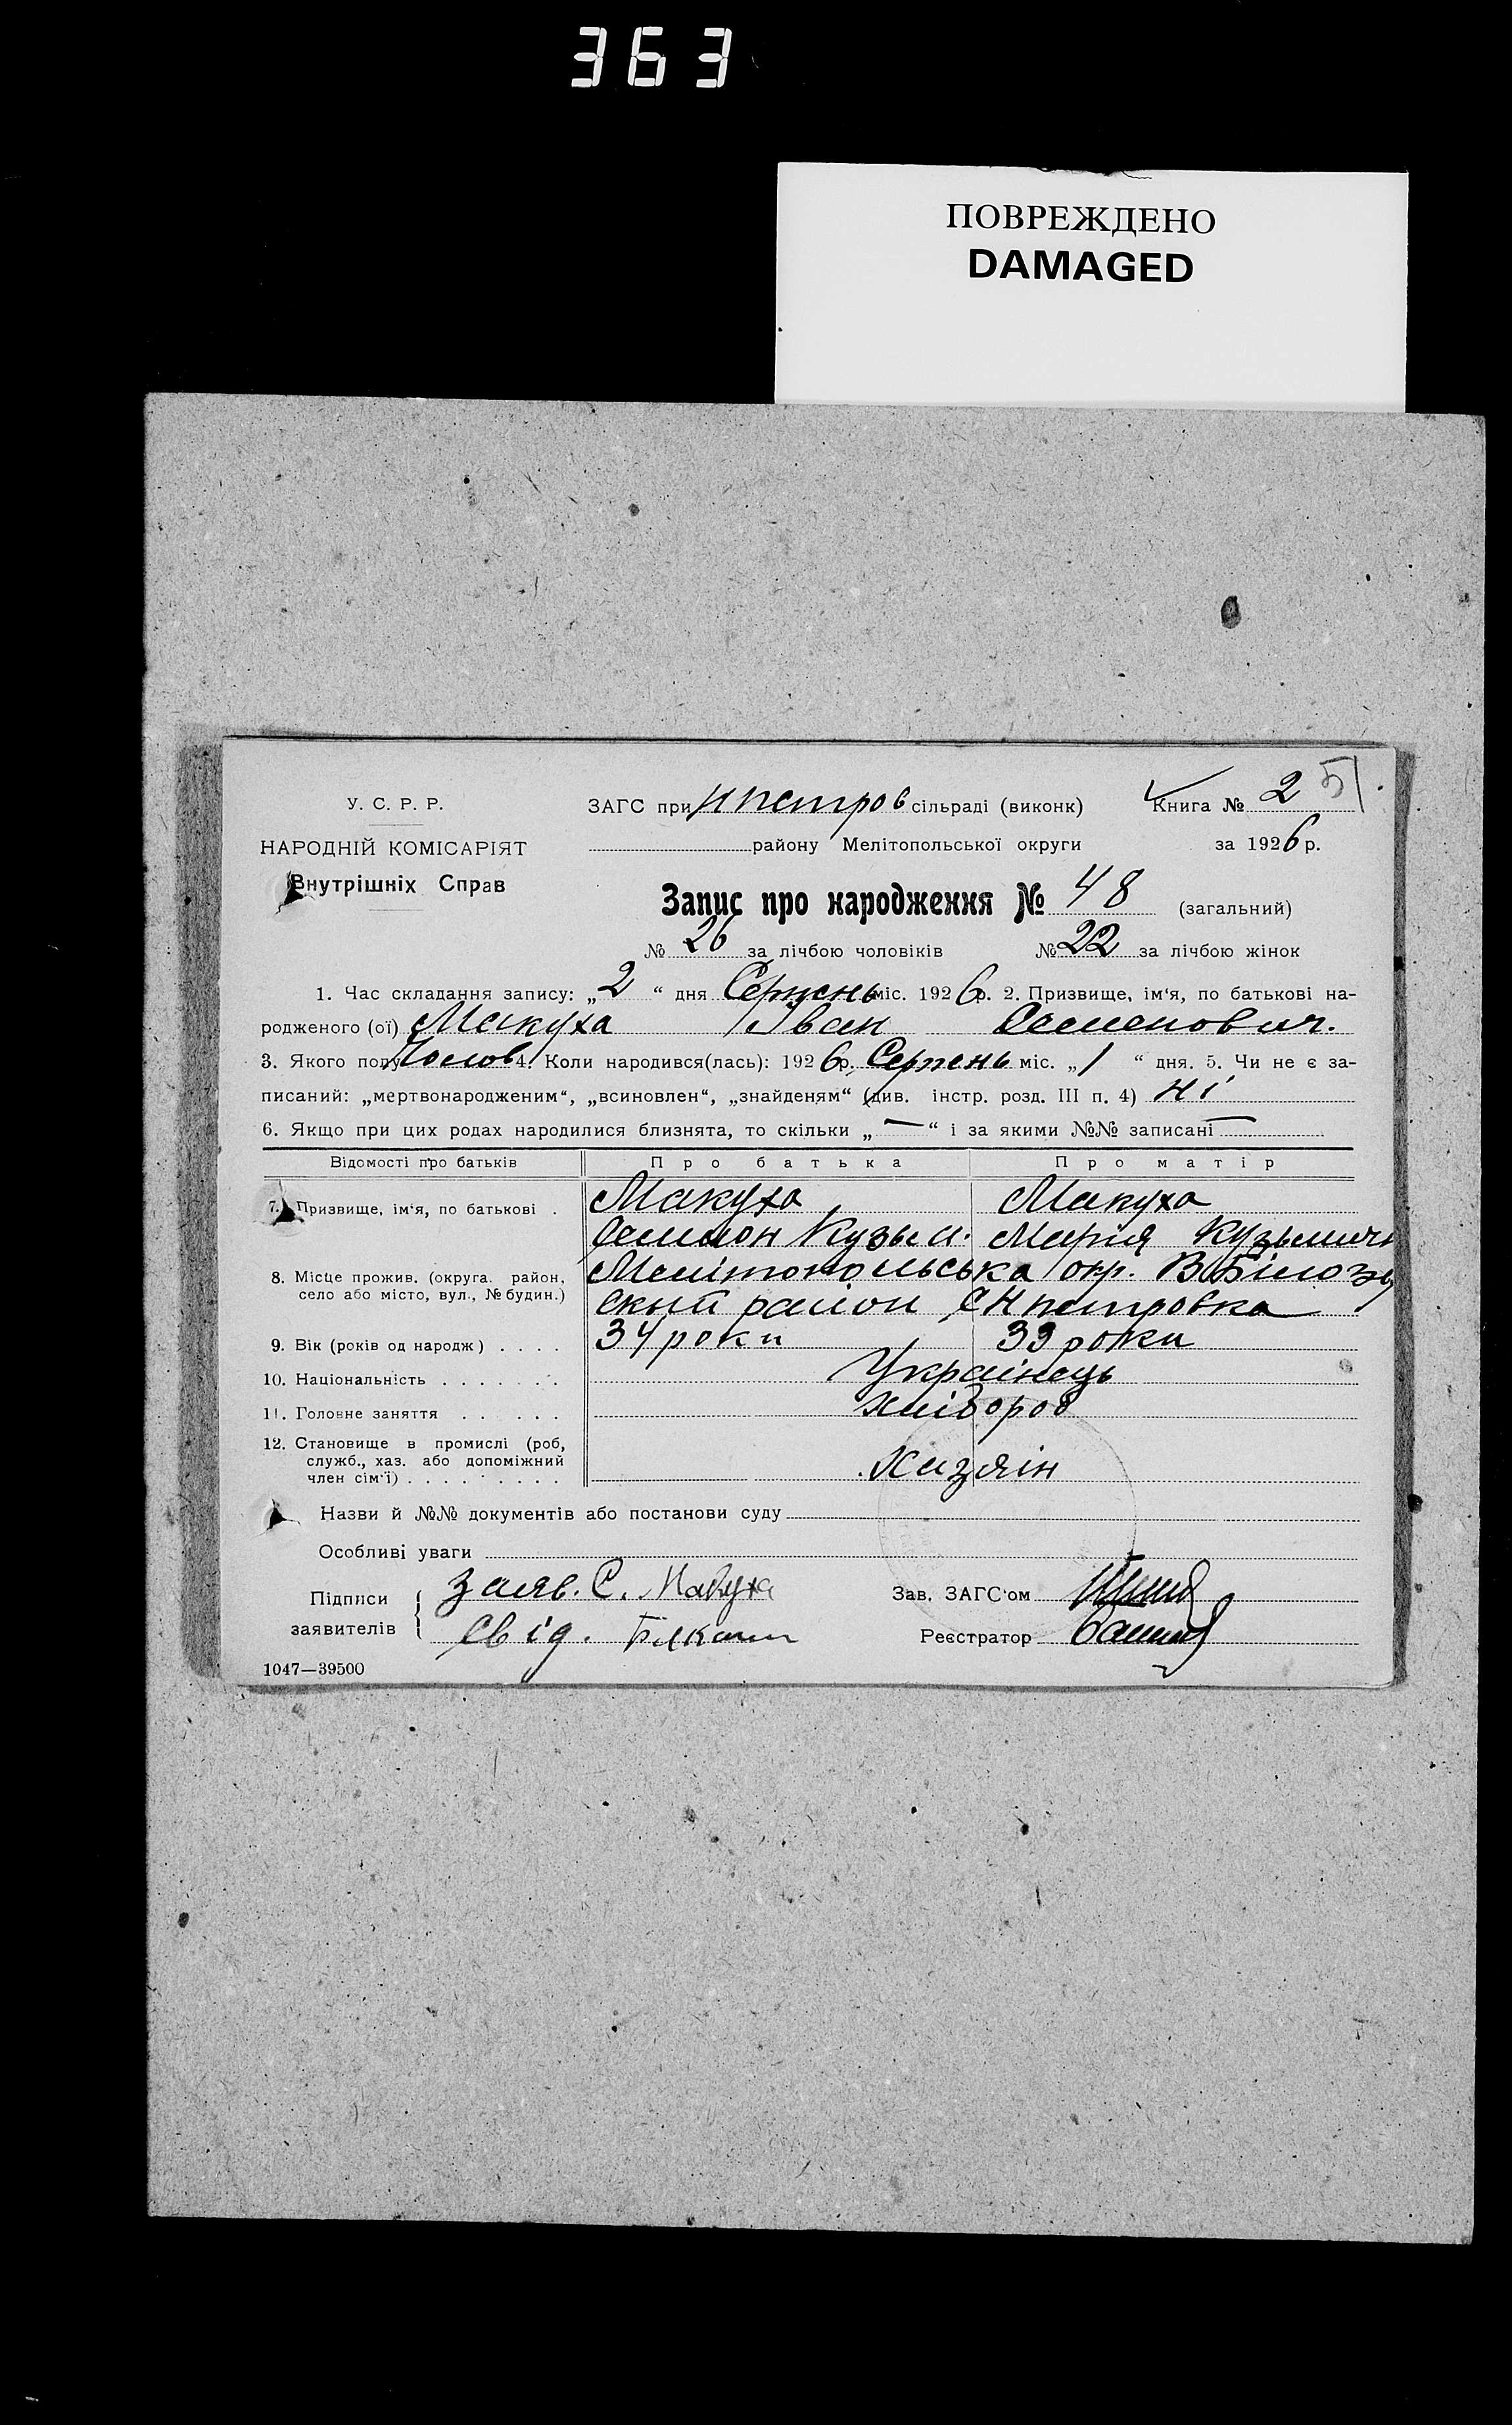 363
ПОВРЕЖДЕНО
DAMAGED
У. С. Р. Р.
НАРОДНІЙ КОМІСАРІЯТ
Внутрішніх Справ
ЗАГС при Нпетров сільраді (виконк)
Книга № 2 51.
району Мелітопольської округи
за 1926 р.
Запис про народження № 48 (загальний)
№ 26 за лічбою чоловіків № 22 за лічбою жінок
1. Час складання запису: „2“ дня Серпень міс. 1926 р. 2. Призвище, ім'я, по батькові на-
родженого (ої) Макуха Іван Семенович.
3. Якого полу Чолов 4. Коли народився(лась): 1926 р. Серпень міс. „1“ дня. 5. Чи не є за-
писаний: „мертвонародженим“, „всиновлен“, „знайденям“ (див. інстр. розд. III п. 4) Ні
6. Якщо при цих родах народилися близнята, то скільки „—“ і за якими №№ записані —
Відомості про батьків Про батька Про матір
7. Призвище, ім'я, по батькові . Макуха Макуха
Семион Кузьм. Марія Кузьмичн
8. Місце прожив. (округа. район, село або місто, вул., № будин.) Мелітопольська окр. ВБілозір
ский район с Нпетровка
9. Вік (років од народж) . . . . 34 роки 33 роки
10. Національність . . . . . . . Українець
11. Головне заняття . . . . . . хлібороб
12. Становище в промислі (роб,
служб., хаз. або допоміжний
член сім'ї) . . . . . . . . . Хазяін
Назви й №№ документів або постанови суду
Особливі уваги
Підписи
заявителів
заяв. С. Макуха
Свід.
Зав. ЗАГС'ом
Реєстратор
1047—39500